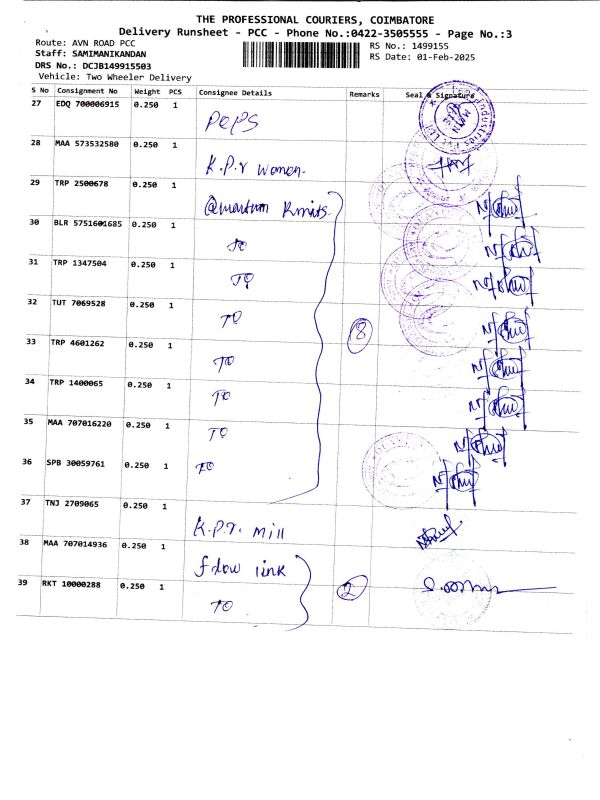 THE PROFESSIONAL COURIERS, COIMBATORE
Delivery Runsheet - PCC - Phone No.:0422-3505555 - Page No.:3
Route: AVN ROAD PCC
RS No.: 1499155
Staff: SAMIMANIKANDAN
RS Date: 01-Feb-2025
DRS No.: DCJB149915503
Vehicle: Two Wheeler Delivery
S No Consignment No Weight PCS Consignee Details Remarks Seal & Signature
27 EDQ 700006915 0.250 1 Peps
28 MAA 573532580 0.250 1 K.P.r women.
29 TRP 2500678 0.250 1 Quantum Knits
30 BLR 5751601685 0.250 1 TO
31 TRP 1347504 0.250 1 TO
32 TUT 7069528 0.250 1 TO 8
33 TRP 4601262 0.250 1 TO
34 TRP 1400065 0.250 1 TO
35 MAA 707016220 0.250 1 TO
36 SPB 30059761 0.250 1 TO
37 TNJ 2709065 0.250 1 K.P.r. mill
38 MAA 707014936 0.250 1 flow link
39 RKT 10000288 0.250 1 TO 2